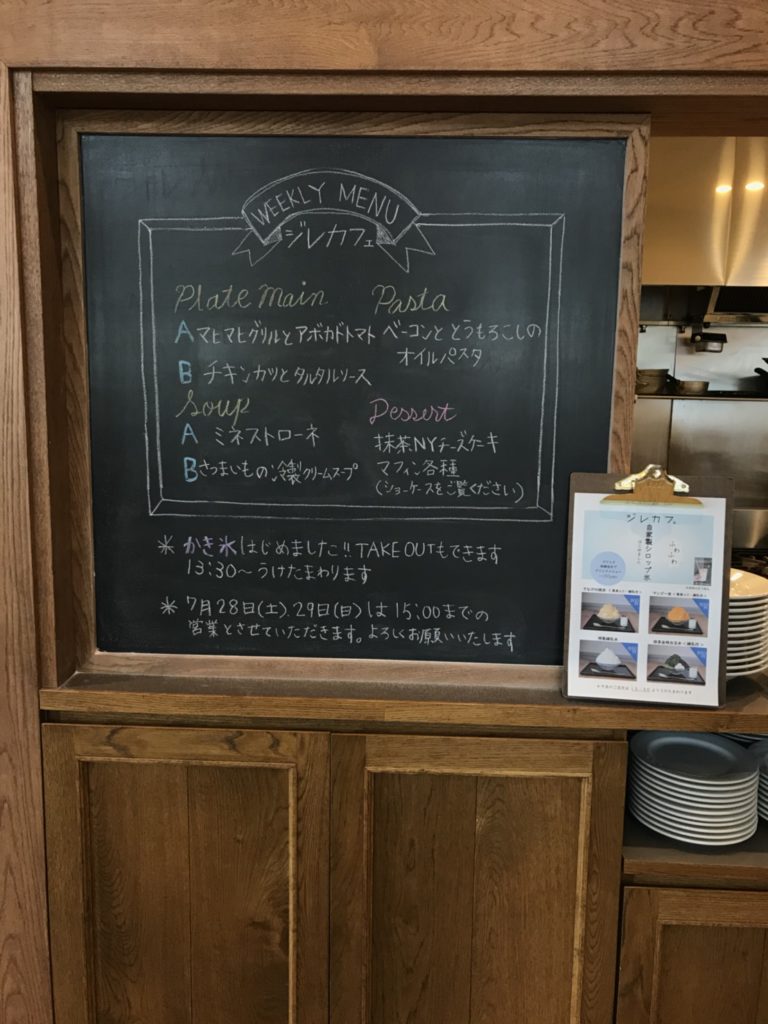 WEEKLY MENU
ジレカフェ
Plate main
A マヒマヒグリルとアボカドトマト
B チキンカツとタルタルソース
Pasta
ベーコンととうもろこしの
オイルパスタ
Soup
A ミネストローネ
B さつまいもの冷製クリームスープ
Dessert
抹茶NYチーズケーキ
マフィン各種
(ショーケースをご覧ください)
* かき氷はじめました!! TAKE OUTもできます
13:30~うけたまわります
* 7月28日(土).29日(日)は15:00までの
営業とさせていただきます。よろしくお願いいたします
ジレカフェ
自家製シロップ氷
はじめました
ふわふわ